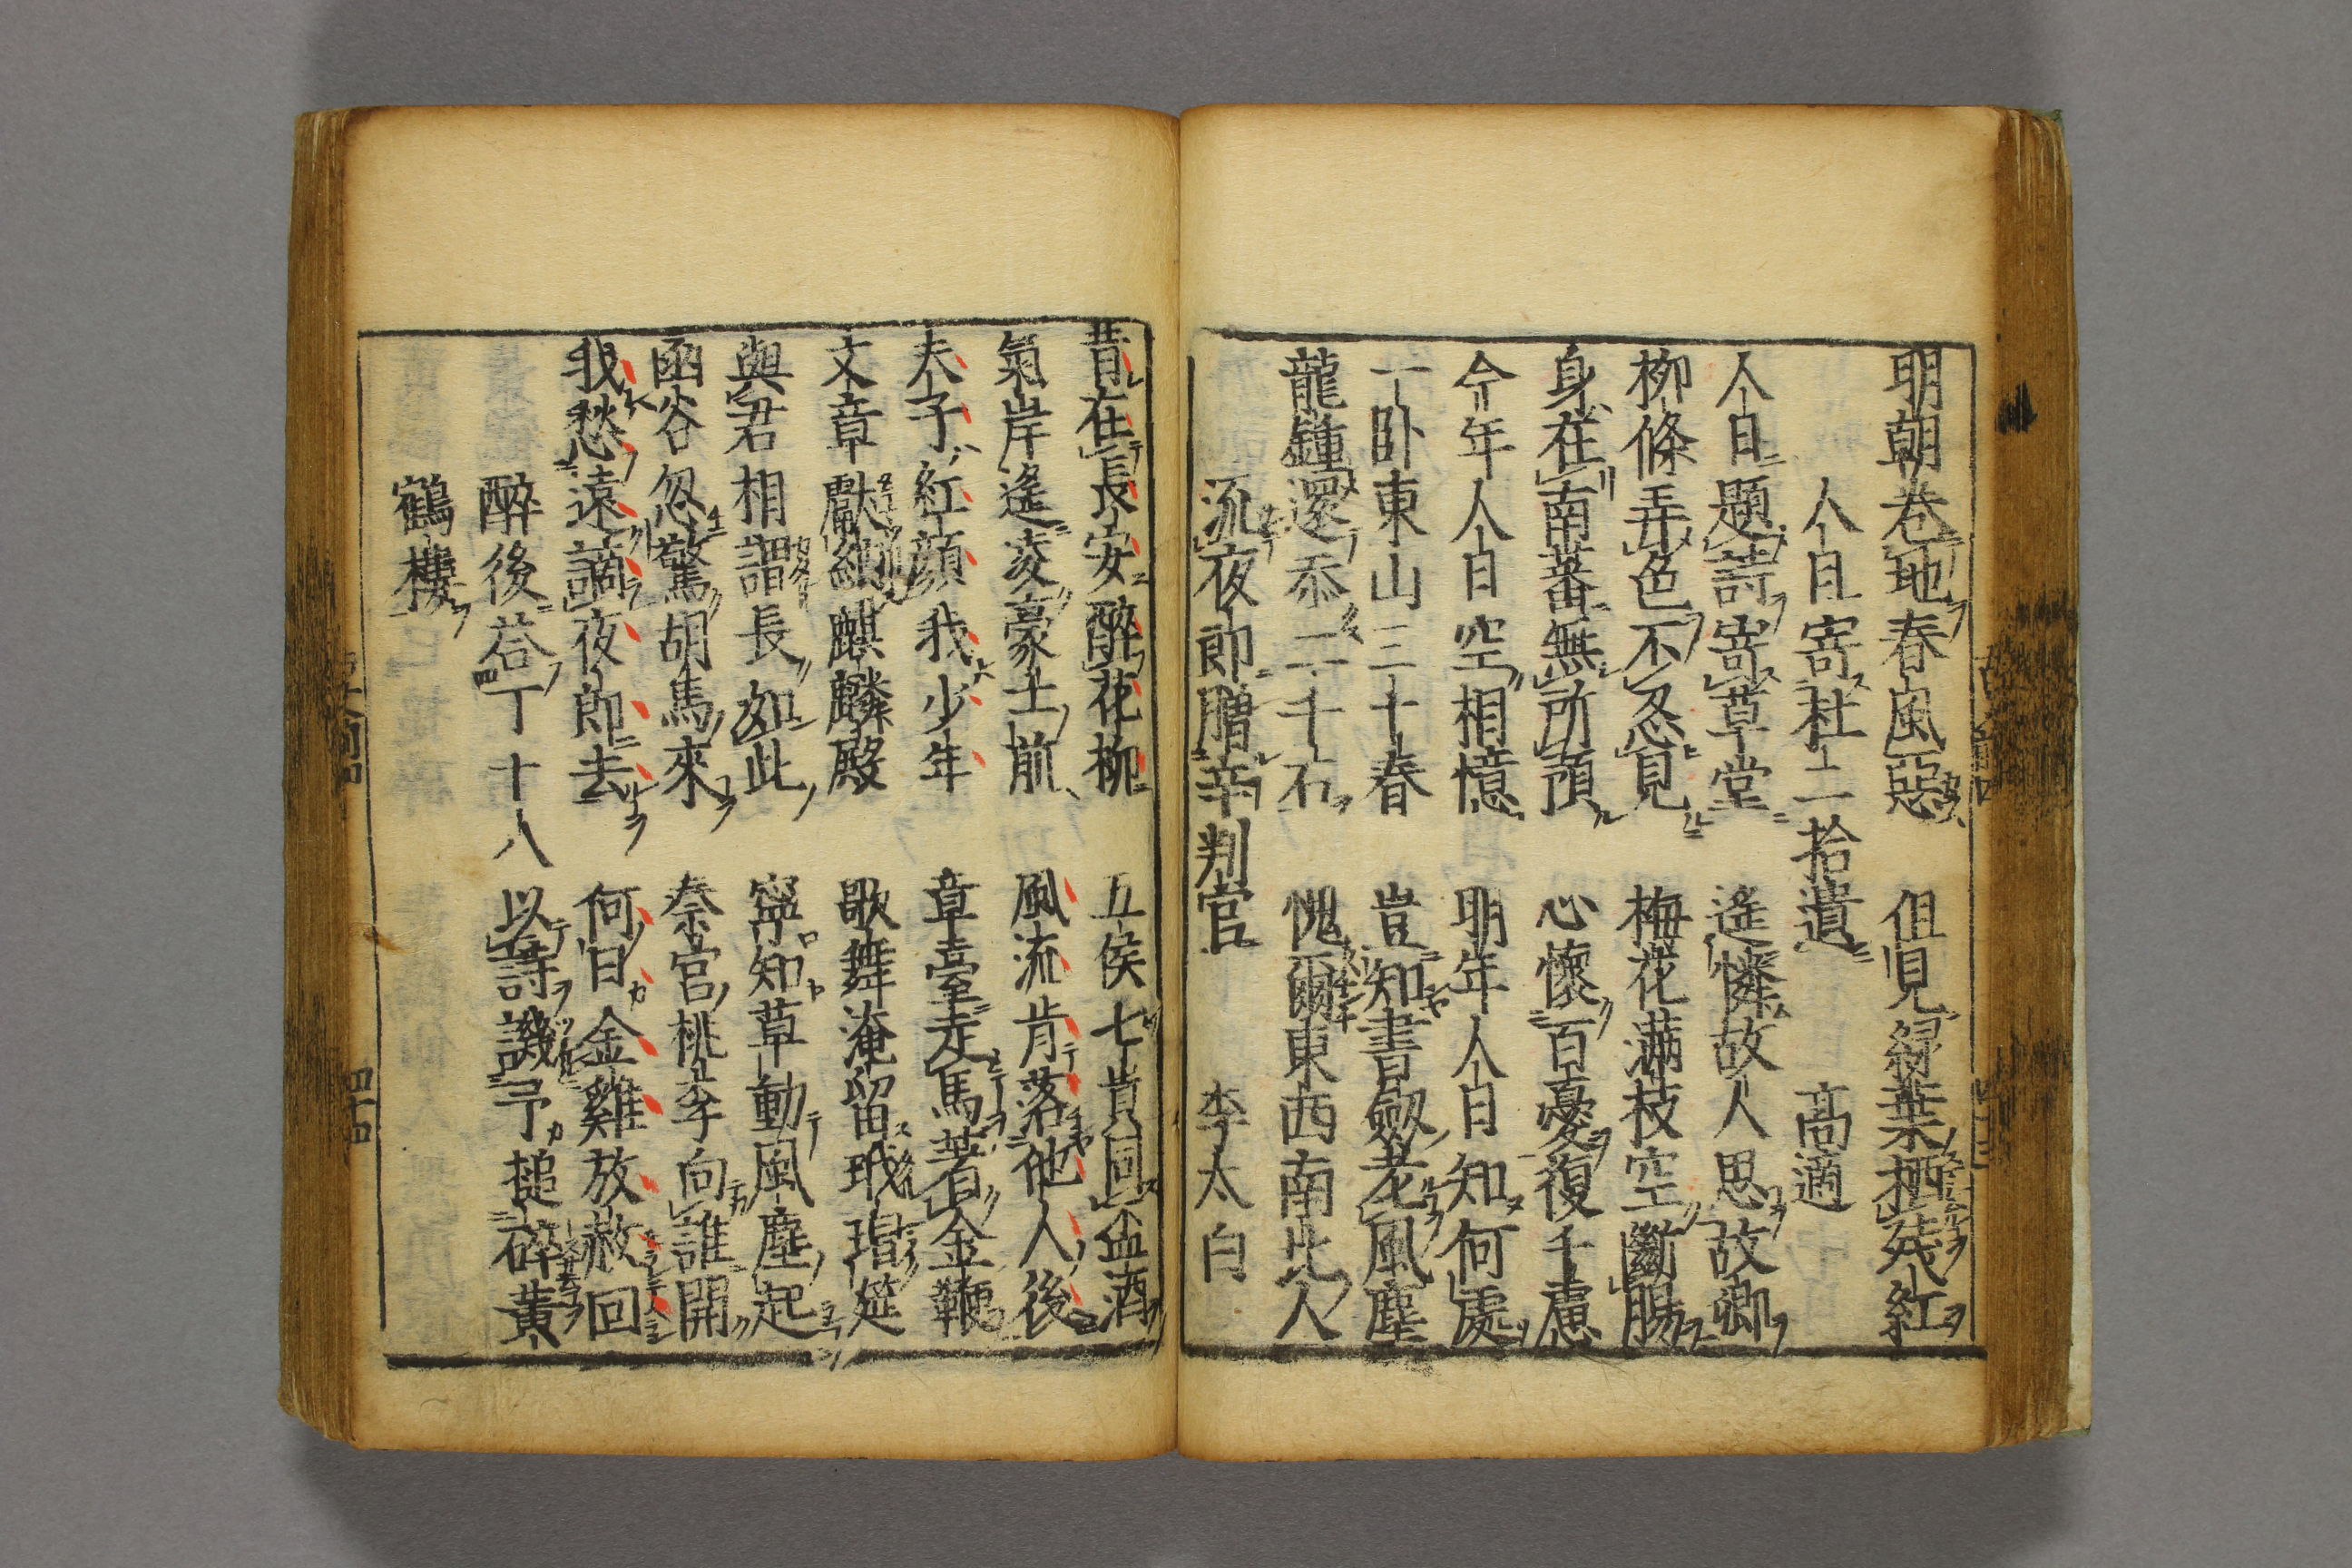 明朝巻地春風惡　但見緑葉栖残紅
人日寄杜二拾遺　高適
人日題詩寄草堂　遙憐故人思故鄉
柳條弄色不忍見　梅花滿枝空斷腸
身在南蕃無所預　心懷百憂復千慮
今年人日空相憶　明年人日知何處
一卧東山三十春　豈知書劔老風塵
龍鍾還忝二千石　愧爾東西南北人
流夜郎贈辛判官　李太白
昔在長安醉花柳　五侯七貴同盃酒
氣岸遙凌豪士前　風流肯落他人後
夫子紅顔我少年　章臺走馬著金鞭
文章獻納麒麟殿　歌舞淹留玳瑁筵
與君相謂長如此　寧知草動風塵起
函谷忽驚胡馬來　秦宮桃李向誰開
我愁遠謫夜郎去　何日金雞放赦回
醉後荅丁十八　以詩譏予搥碎黄
鶴樓